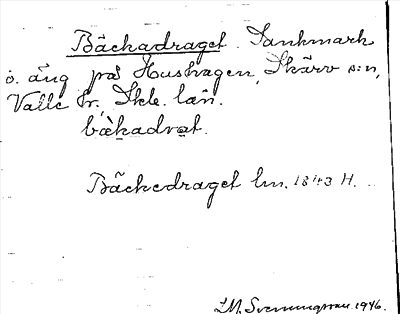 Bäckadraget. Sankmark
o. äng på Hushagen, Skärv s:n,
Valle hr, Skb. län.
bæ̀kadrət.
Bäckedraget lm. 1843 H.
I.M. Svenungsson. 1946.